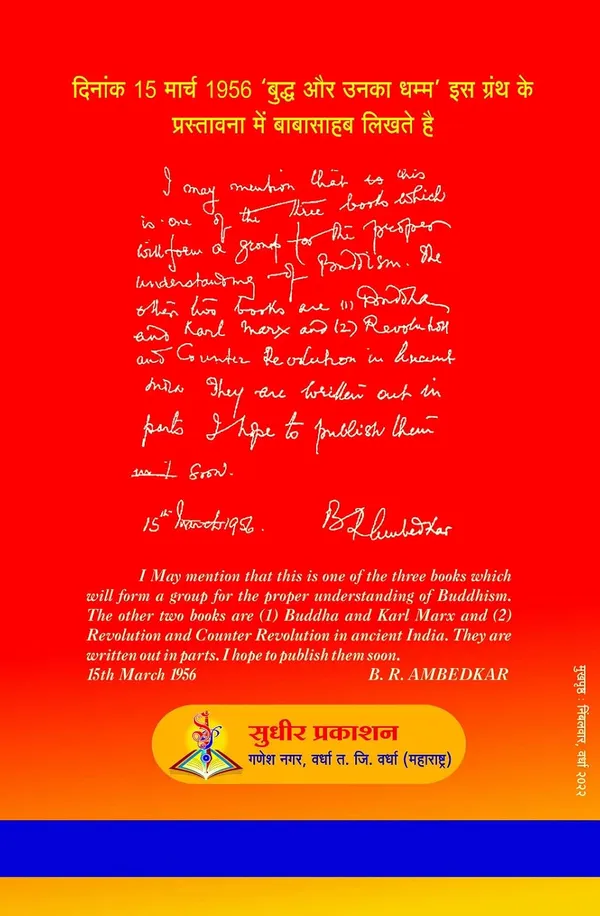 दिनांक 15 मार्च 1956 ‘बुद्ध और उनका धम्म’ इस ग्रंथ के
प्रस्तावना में बाबासाहब लिखते है
I may mention that this
is one of the three books which
will form a group for the proper
understanding of Buddhism. The
other two books are (1) Buddha
and Karl Marx and (2) Revolution
and Counter Revolution in Ancient
India They are written out in
parts I hope to publish them
soon.
15th March 1956. B R Ambedkar
I May mention that this is one of the three books which
will form a group for the proper understanding of Buddhism.
The other two books are (1) Buddha and Karl Marx and (2)
Revolution and Counter Revolution in ancient India. They are
written out in parts. I hope to publish them soon.
15th March 1956 B. R. AMBEDKAR
सुधीर प्रकाशन
गणेश नगर, वर्धा त. जि. वर्धा (महाराष्ट्र)
मुखपृष्ठ : निंबलवार, वर्धा २०२२